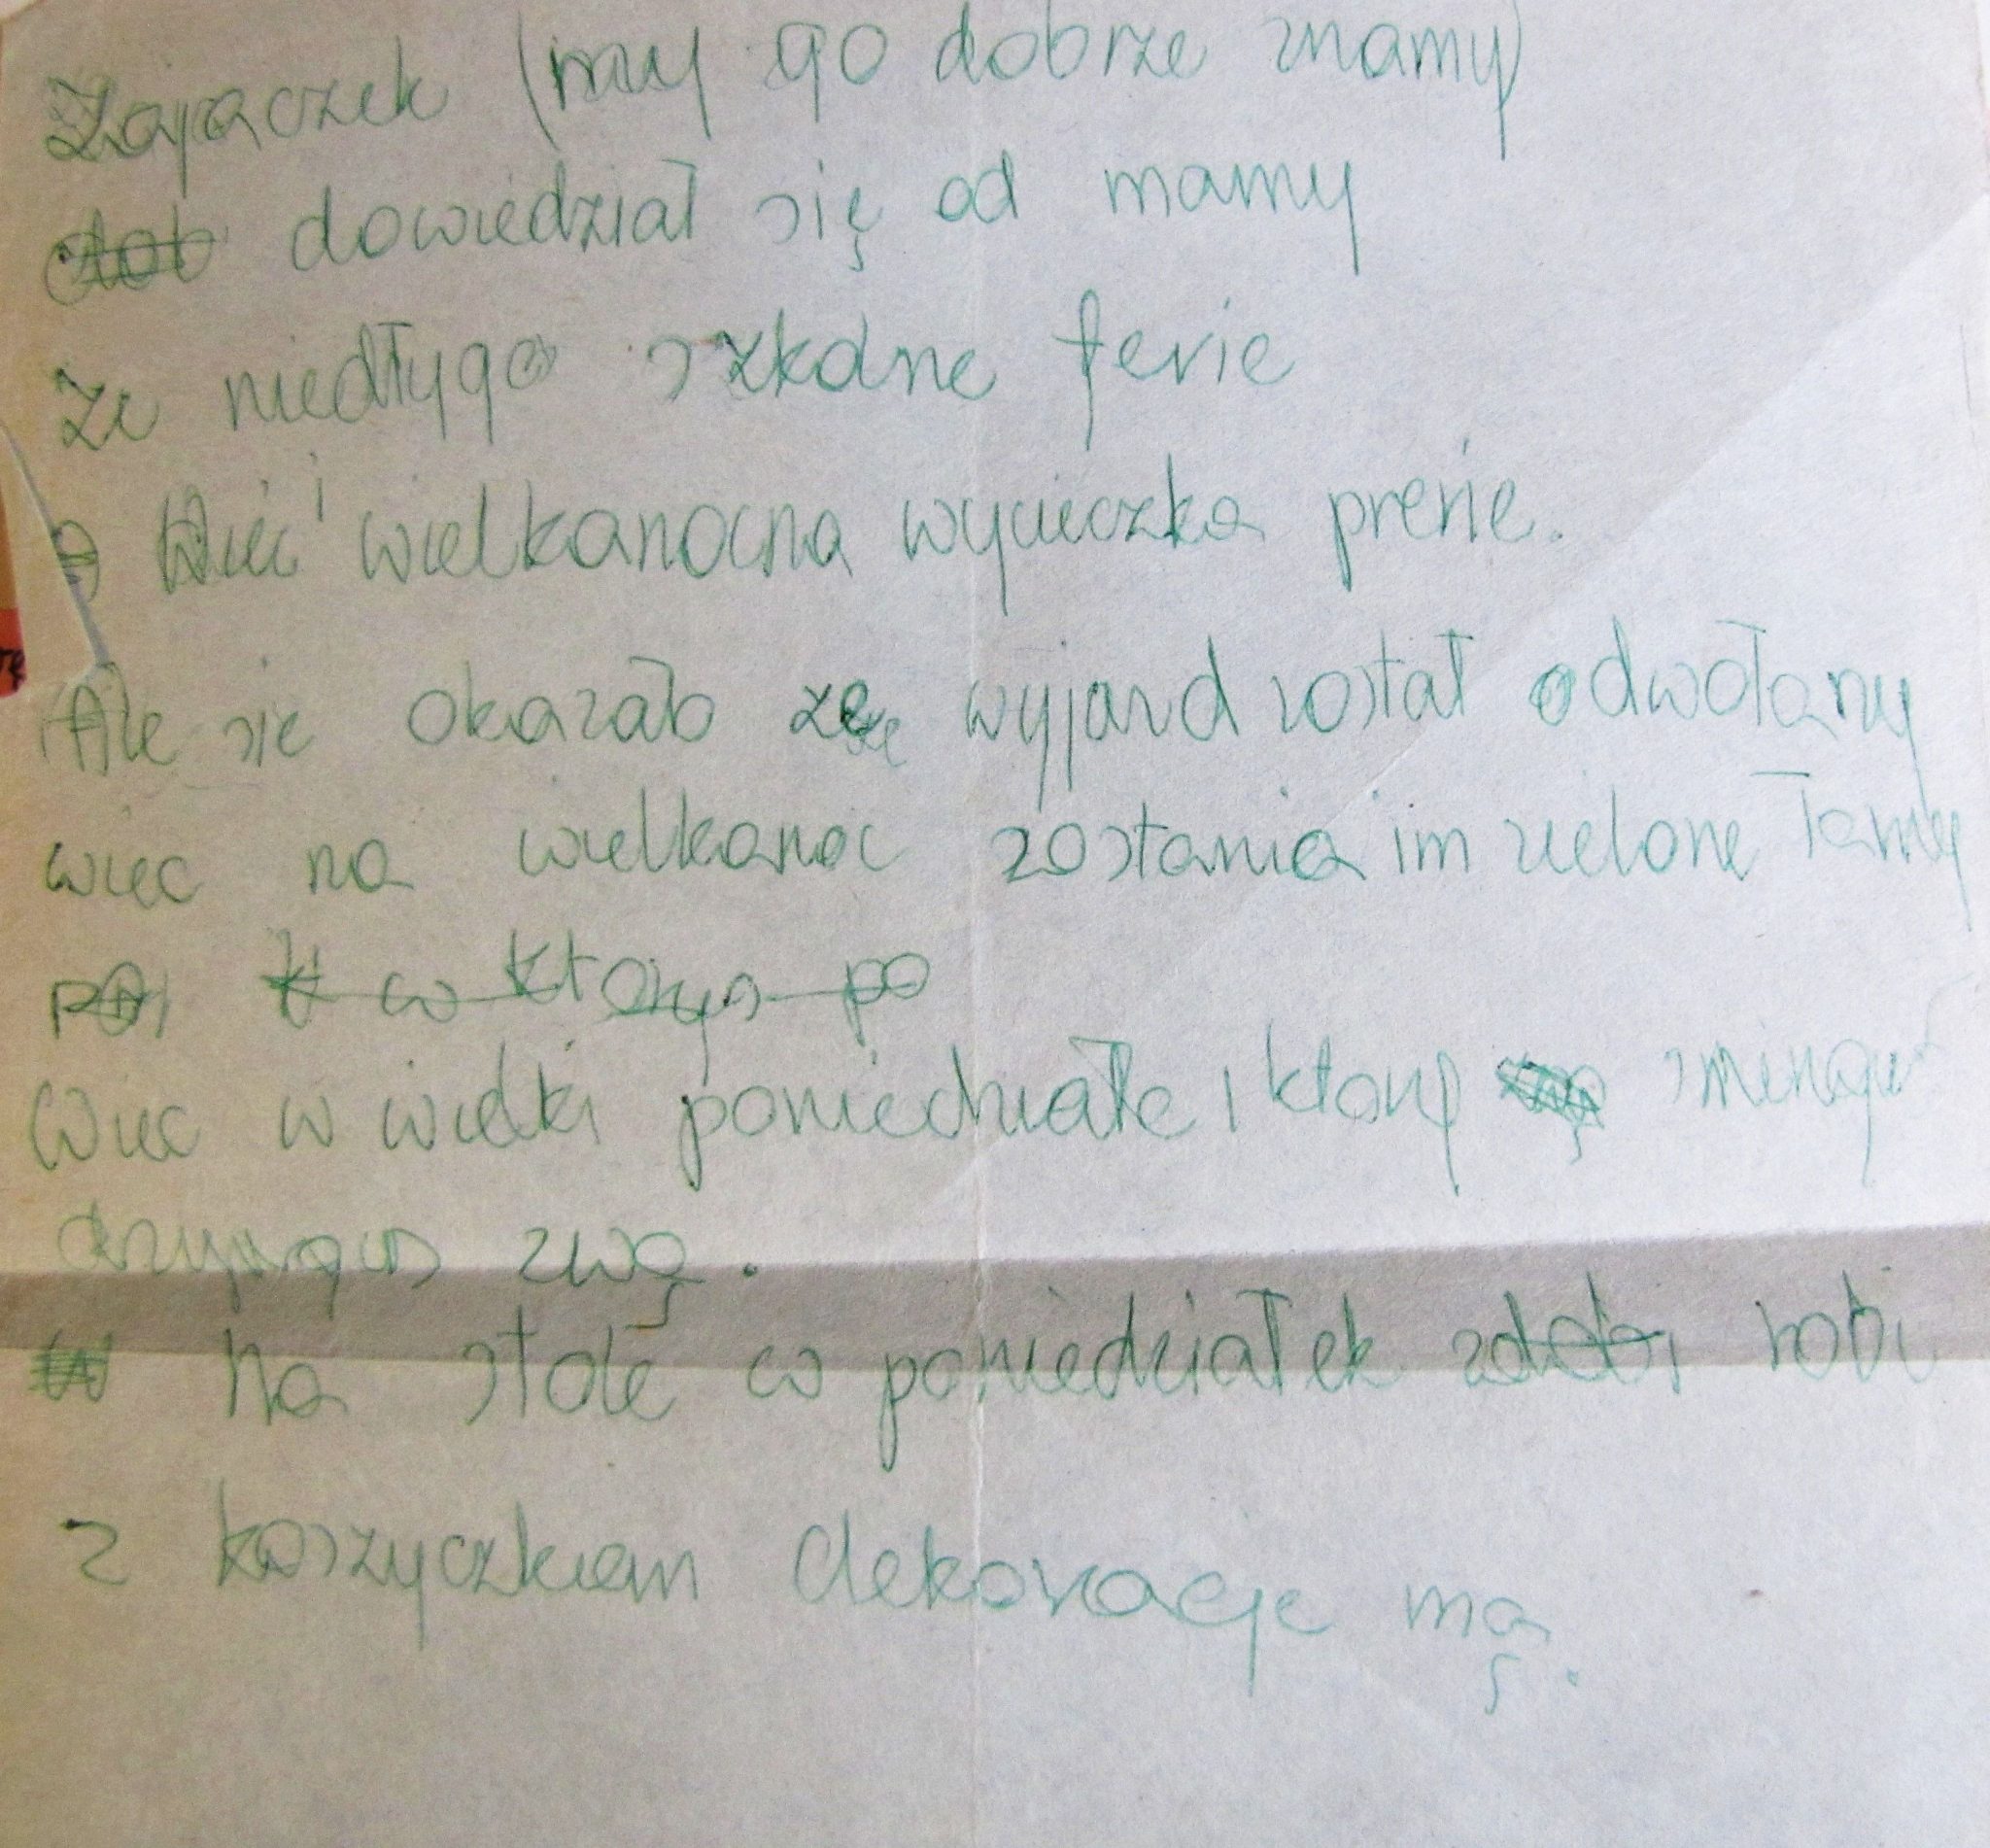 Zajączek (my go dobrze znamy)
dowiedział się od mamy
że niedłygo szkolne ferie
Więc i wielkanocna wycieczka prerie.
Ale sie okazało że wyjazd został odwołany
więc na wielkanoc zostania im zielone łamy
w ktorys po
Wiec w wielki poniedziałe
zwą.
Na stole w poniedziałek robi
z koszyczkiem dekoracje mą.